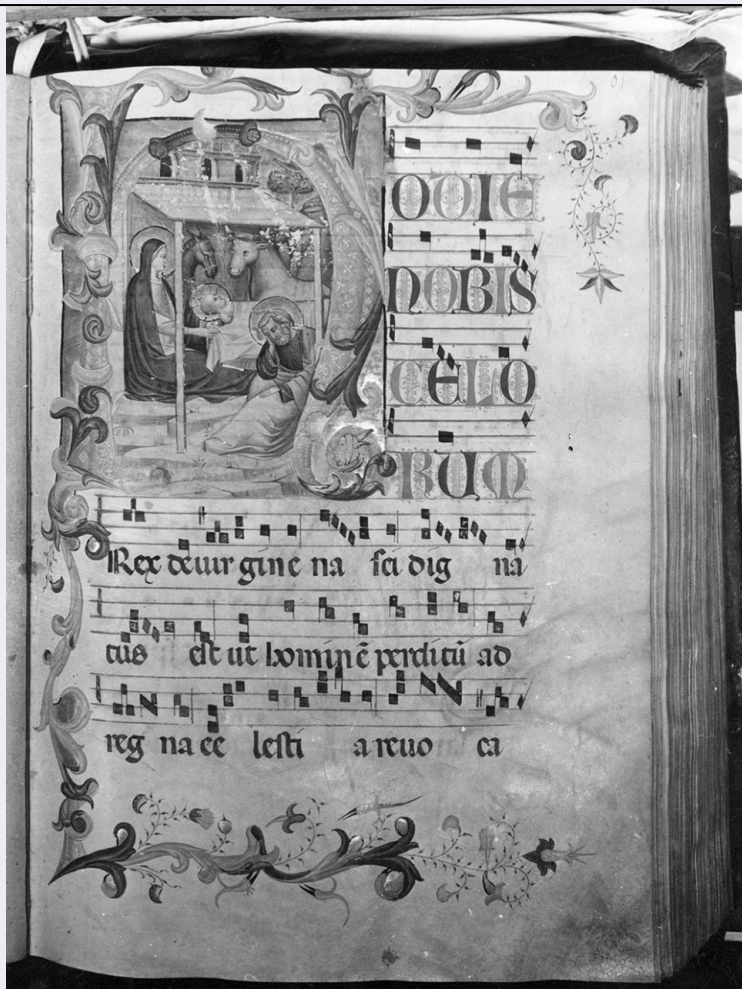 HODIE
NOBIS
CELO
RUM
Rex de uir gine na sci dig na
tus est ut hominē perditū ad
reg na ce lesti a reuo ca